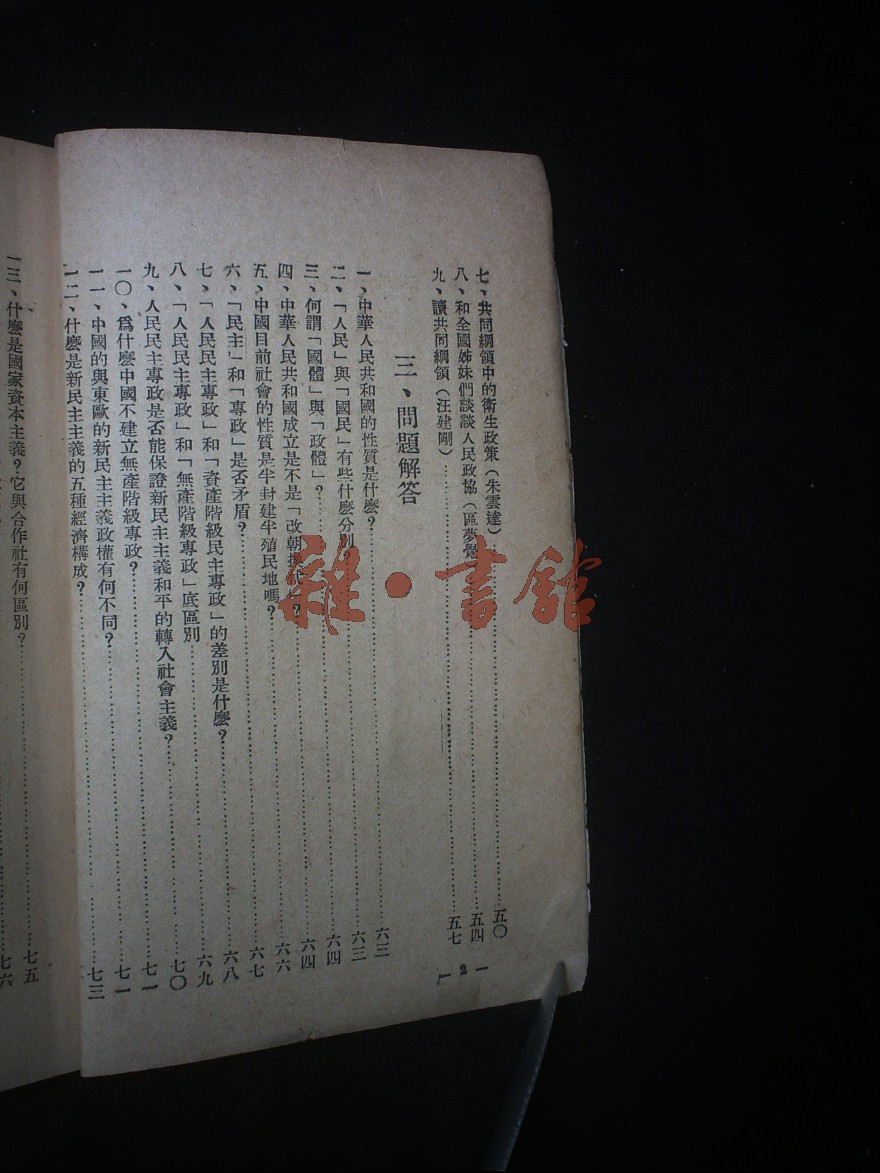 七、共同綱領中的衛生政策(朱雲達)……五〇
八、和全國姊妹們談談人民政協(區夢覺……五四
九、讀共同綱領(汪建剛)……五七
三、問題解答
一、中華人民共和國的性質是什麼?……六三
二、「人民」與「國民」有些什麼分別……六四
三、何謂「國體」與「政體」?……六四
四、中華人民共和國成立是不是「改朝換……?……六六
五、中國目前社會的性質是半封建半殖民地嗎?……六七
六、「民主」和「專政」是否矛盾?……六八
七、「人民民主專政」和「資產階級民主專政」的差別是什麼?……六九
八、「人民民主專政」和「無產階級專政」底區別……七〇
九、人民民主專政是否能保證新民主主義和平的轉入社會主義?……七一
一〇、爲什麼中國不建立無產階級專政?……七一
一一、中國的與東歐的新民主主義政權有何不同?……
一二、什麼是新民主主義的五種經濟構成?……七三
一三、什麼是國家資本主義?它與合作社有何區別?……七五
七六
— 2 —
雜·書館